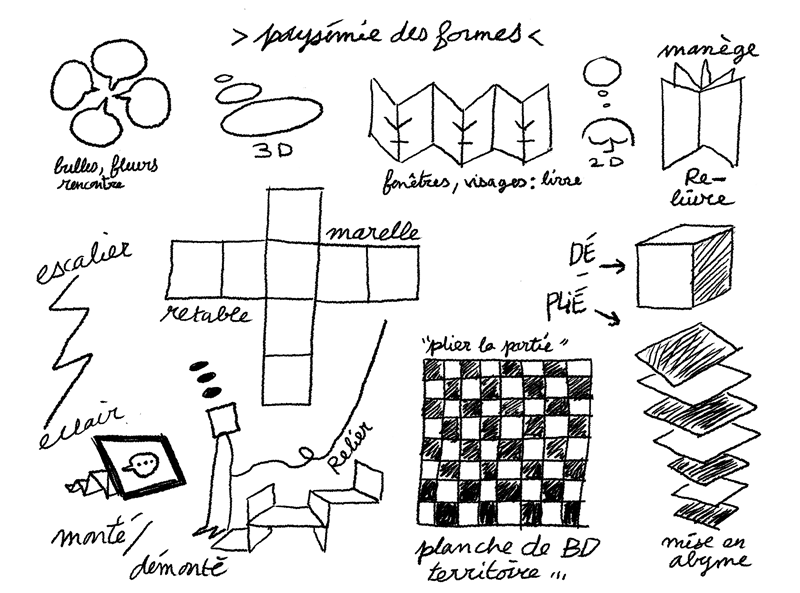 > polysémie des formes <
manège
bulles, fleurs
rencontre
3D
fenêtres, visages : livre
2D
Re-
liure
escalier
marelle
retable
DÉ
-
PLIÉ
"plier la partie"
éclair
Relier
monté/
démonté
planche de BD
territoire ...
mise en
abyme